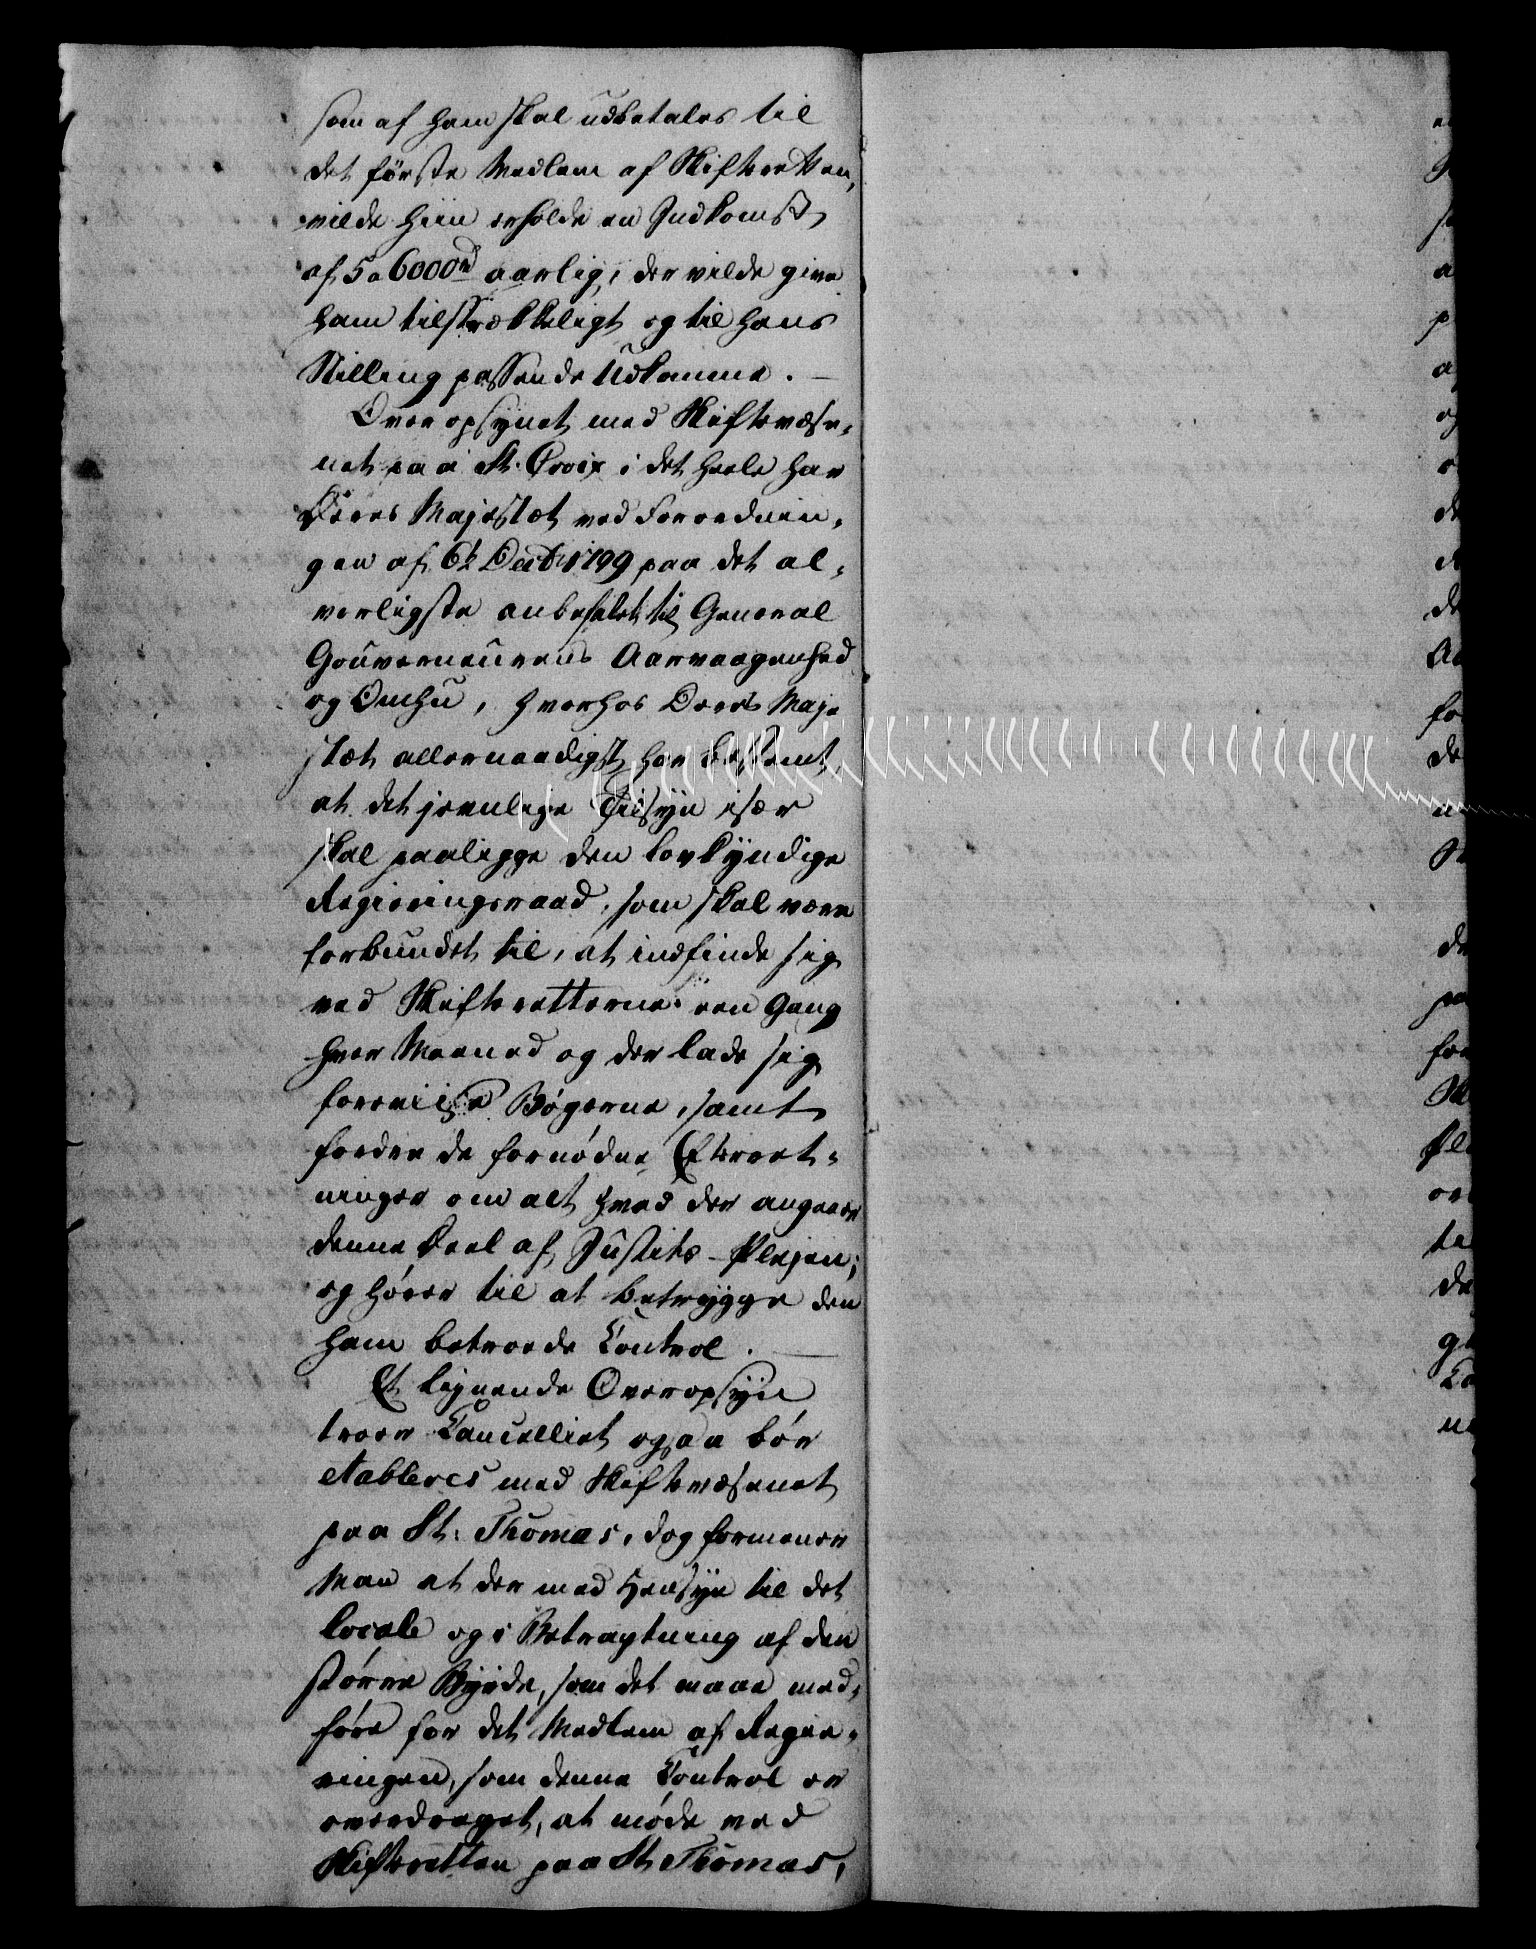 som af ham skal udbetales til
det første Medlem af Skifteretten,
vilde hiin erholde en Indkomst
af 5 a 6000rd aarlig, der vilde give
ham tilstrækkeligt og til hans
Stilling passende Udkomme. —
Over opsynet med Skiftevæse-
net paa St. Croix i det heele har
Deres Majestæt ved Forordnin-
gen af 6te Decbr 1799 paa det al-
vorligste anbefalet til General
Gouverneurens Aarvaagenhed
og Omhu, hvorhos Deres Maje
stæt allernaadigst har bestemt
at det jevnlige Tilsyn især
skal paaligge den lovkyndige
Regieringsraad, som skal være
forbundet til, at indfinde sig
ved Skifteretterne een Gang
hver Maaned og der lade sig
foreviise Bøgerne, samt
fordre de fornødne Efterret-
ninger om alt hvad der angaaer
denne Deel af Justits-Plejen,
og hører til at betrygge den
ham betroede Control. —
Et lignende Overopsyn
troer Cancelliet ogsaa bør
etableres med Skiftevæsenet
paa St. Thomas, dog formener
Man at der med Hensyn til det
locale og i Betragtning af den
større Byrde, som det maae med-
føre for det Medlem af Regie-
ringen, som denne Control er
overdraget, at møde ved
Skifteretten paa St Thomas,